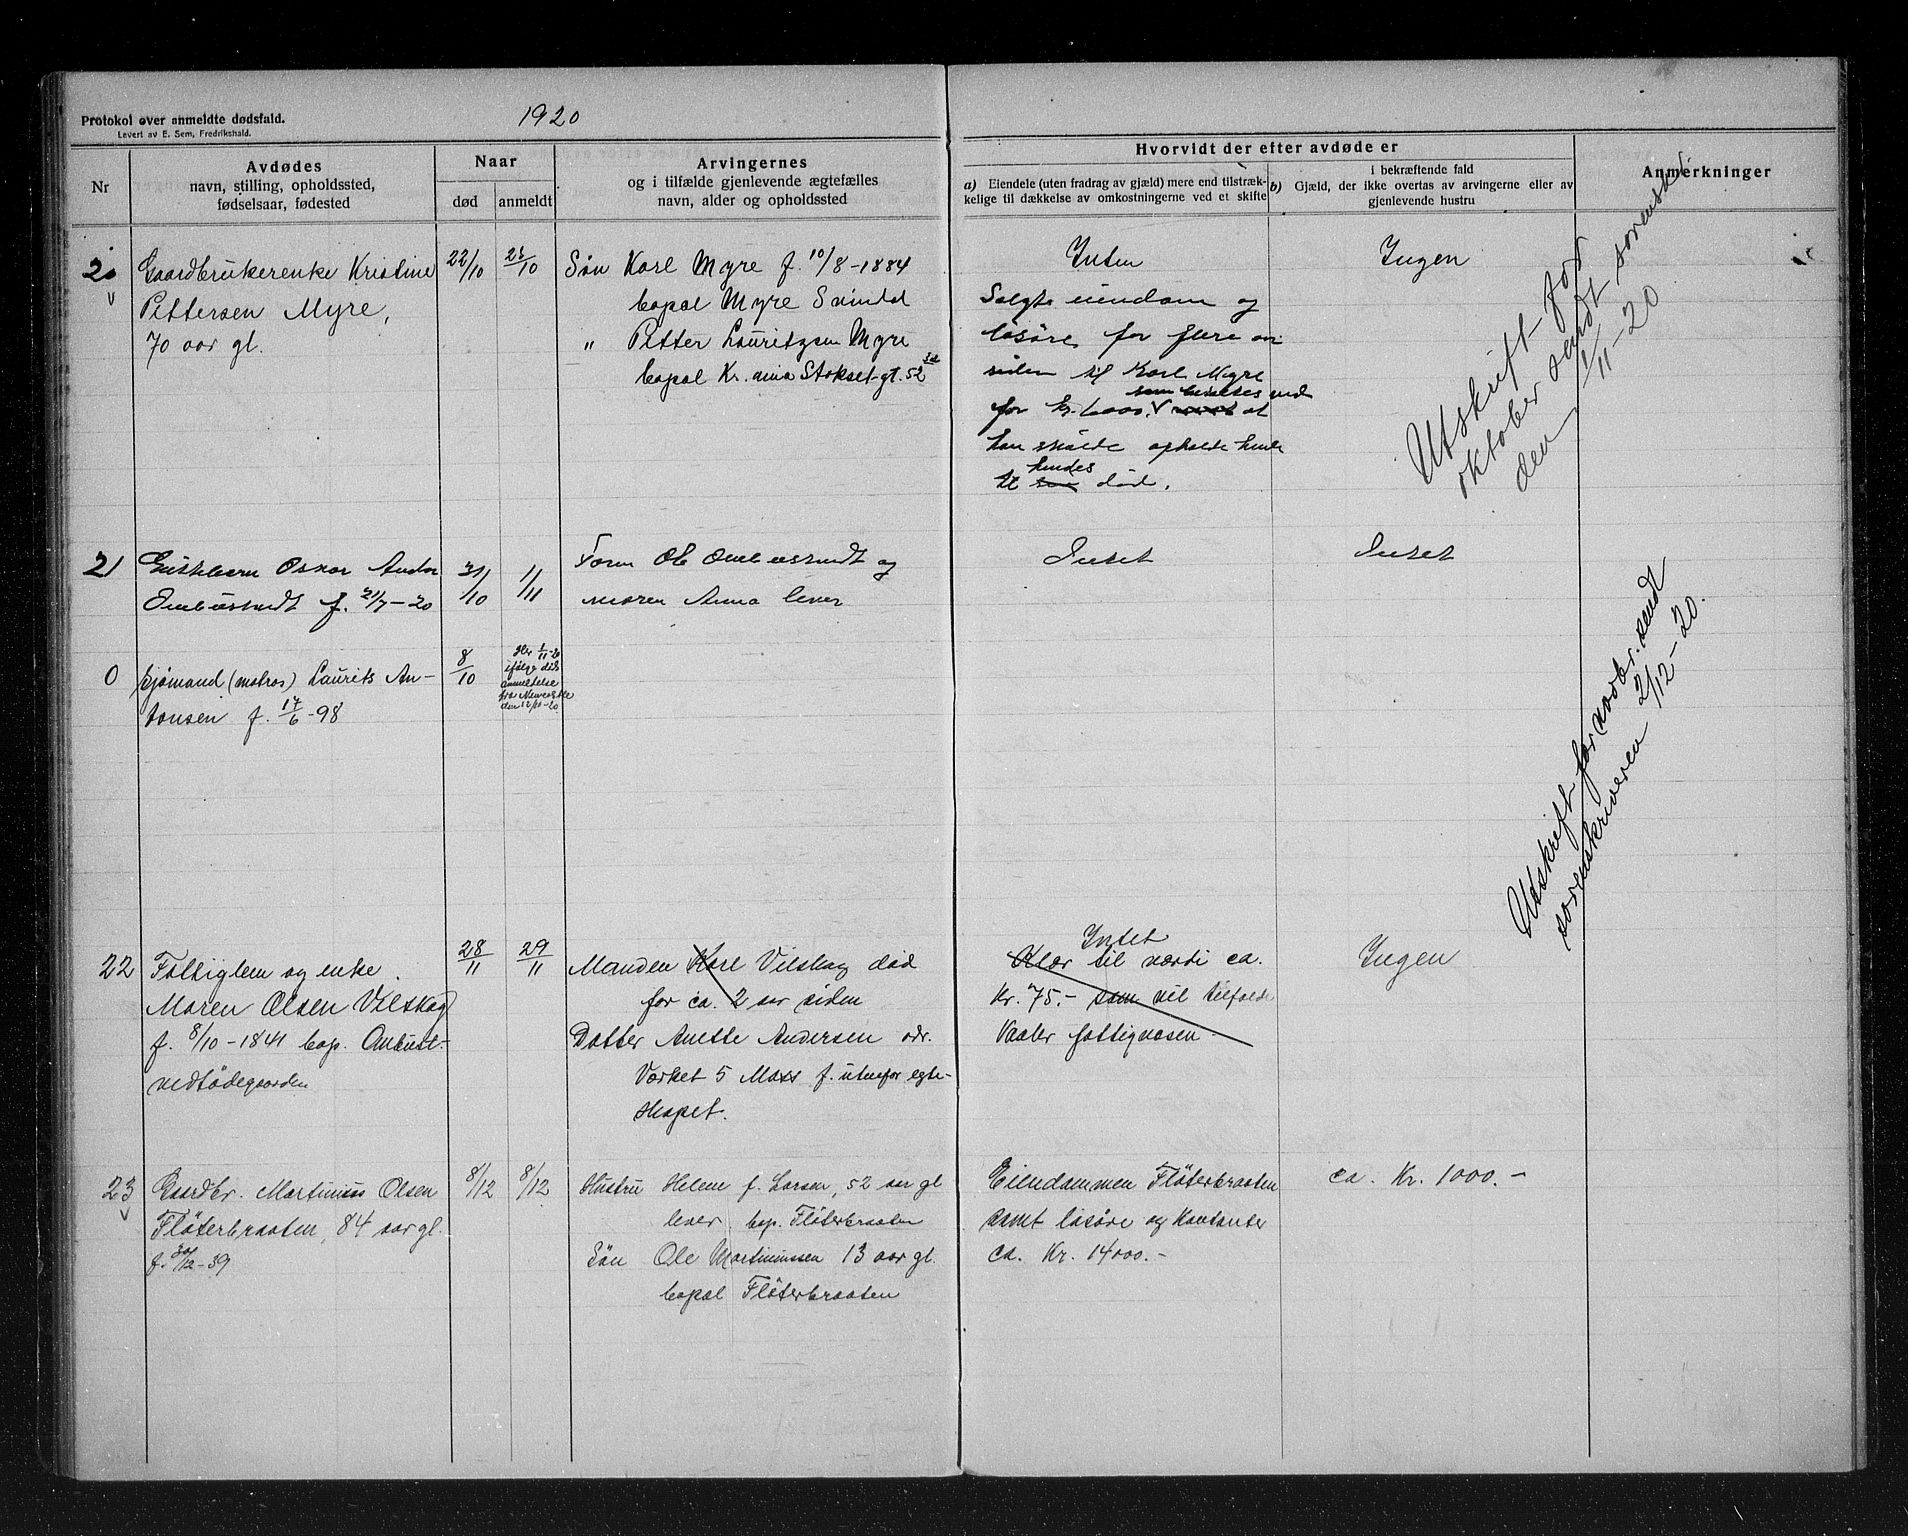 Protokol over anmeldte dødsfald.
Levert av E. Sem, Fredrikshald.
1920
Nr
Avdødes
navn, stilling, opholdssted,
fødselsaar, fødested
Naar
død
anmeldt
Arvingernes
og i tilfælde gjenlevende ægtefælles
navn, alder og opholdssted
Hvorvidt der efter avdøde er
a) Eiendele (uten fradrag av gjæld) mere end tilstræk-
kelige til dækkelse av omkostningerne ved et skifte
I bekræftende fald
b) Gjæld, der ikke overtas av arvingerne eller av
gjenlevende hustru
Anmerkninger
20
Gaardbrukerenke Kristine
Pettersen Myre,
70 aar gl.
22/10
Søn Karl Myre f. 10/8-1884
bopal Myre Svindal
" Petter Lauritzen Myre
bopal Kr.ania Stokset gt. 52
Inten
Solgte eiendom og
løsøre for flere aar
siden til Karl Myre
for kr. 6000. som at
han skulde opholde hende
til hendes død.
Ingen
Utskrift for
oktober sendt sorenskr
den 1/11-20
21
Oskar
f. 21/7-20
31/10
1/11
og
moren Anna lever
Intet
Intet
0
Sjømand (matros) Laurits An-
tonsen f. 17/6-98
8/10
ifølge døds
anmeldelse
fra
den 12/11-20
Utskrift for novbr. sendt
sorenskriveren 2/12-20.
22
Fattiglem og enke
Maren Olsen Vilskog
f. 8/10-1841 bop. Ombust-
vedtødegaarden
28/11
29/11
Manden Karl Vilskog død
for ca. 2 aar siden
Datter Anette Andersen adr.
Værket 5 Moss f. utenfor egte-
skapet.
Intet
Klær til værdi ca.
Kr. 75.- som vil tilfalde
Vaaler fattigvæsen
Ingen
23
Gaardbr. Martinius Olsen
Fløterbraaten, 84 aar gl.
f. 30/12-39
8/12
8/12
Hustru Helene f. Larsen, 52 aar gl
lever bop. Fløterbraaten
Søn Ole Martiniussen 13 aar gl.
bopal Fløterbraaten
Eiendommen Fløterbraaten
samt løsøre og Kontanter
ca. Kr. 14000.-
ca. Kr. 1000.-